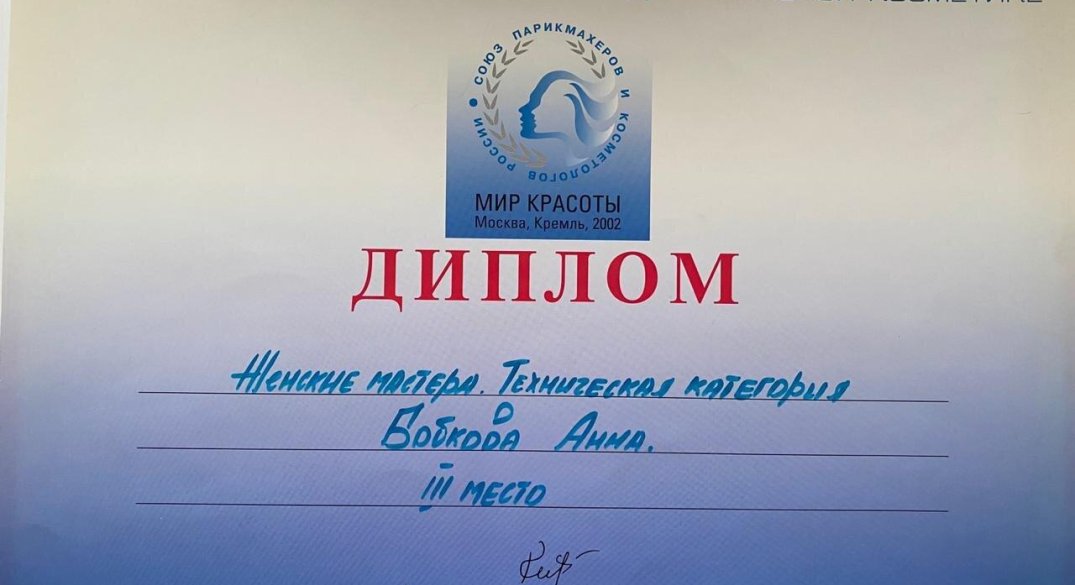 СОЮЗ ПАРИКМАХЕРОВ И КОСМЕТОЛОГОВ РОССИИ
МИР КРАСОТЫ
Москва, Кремль, 2002
ДИПЛОМ
Женские мастера. Техническая категория
Бобкова Анна.
III место